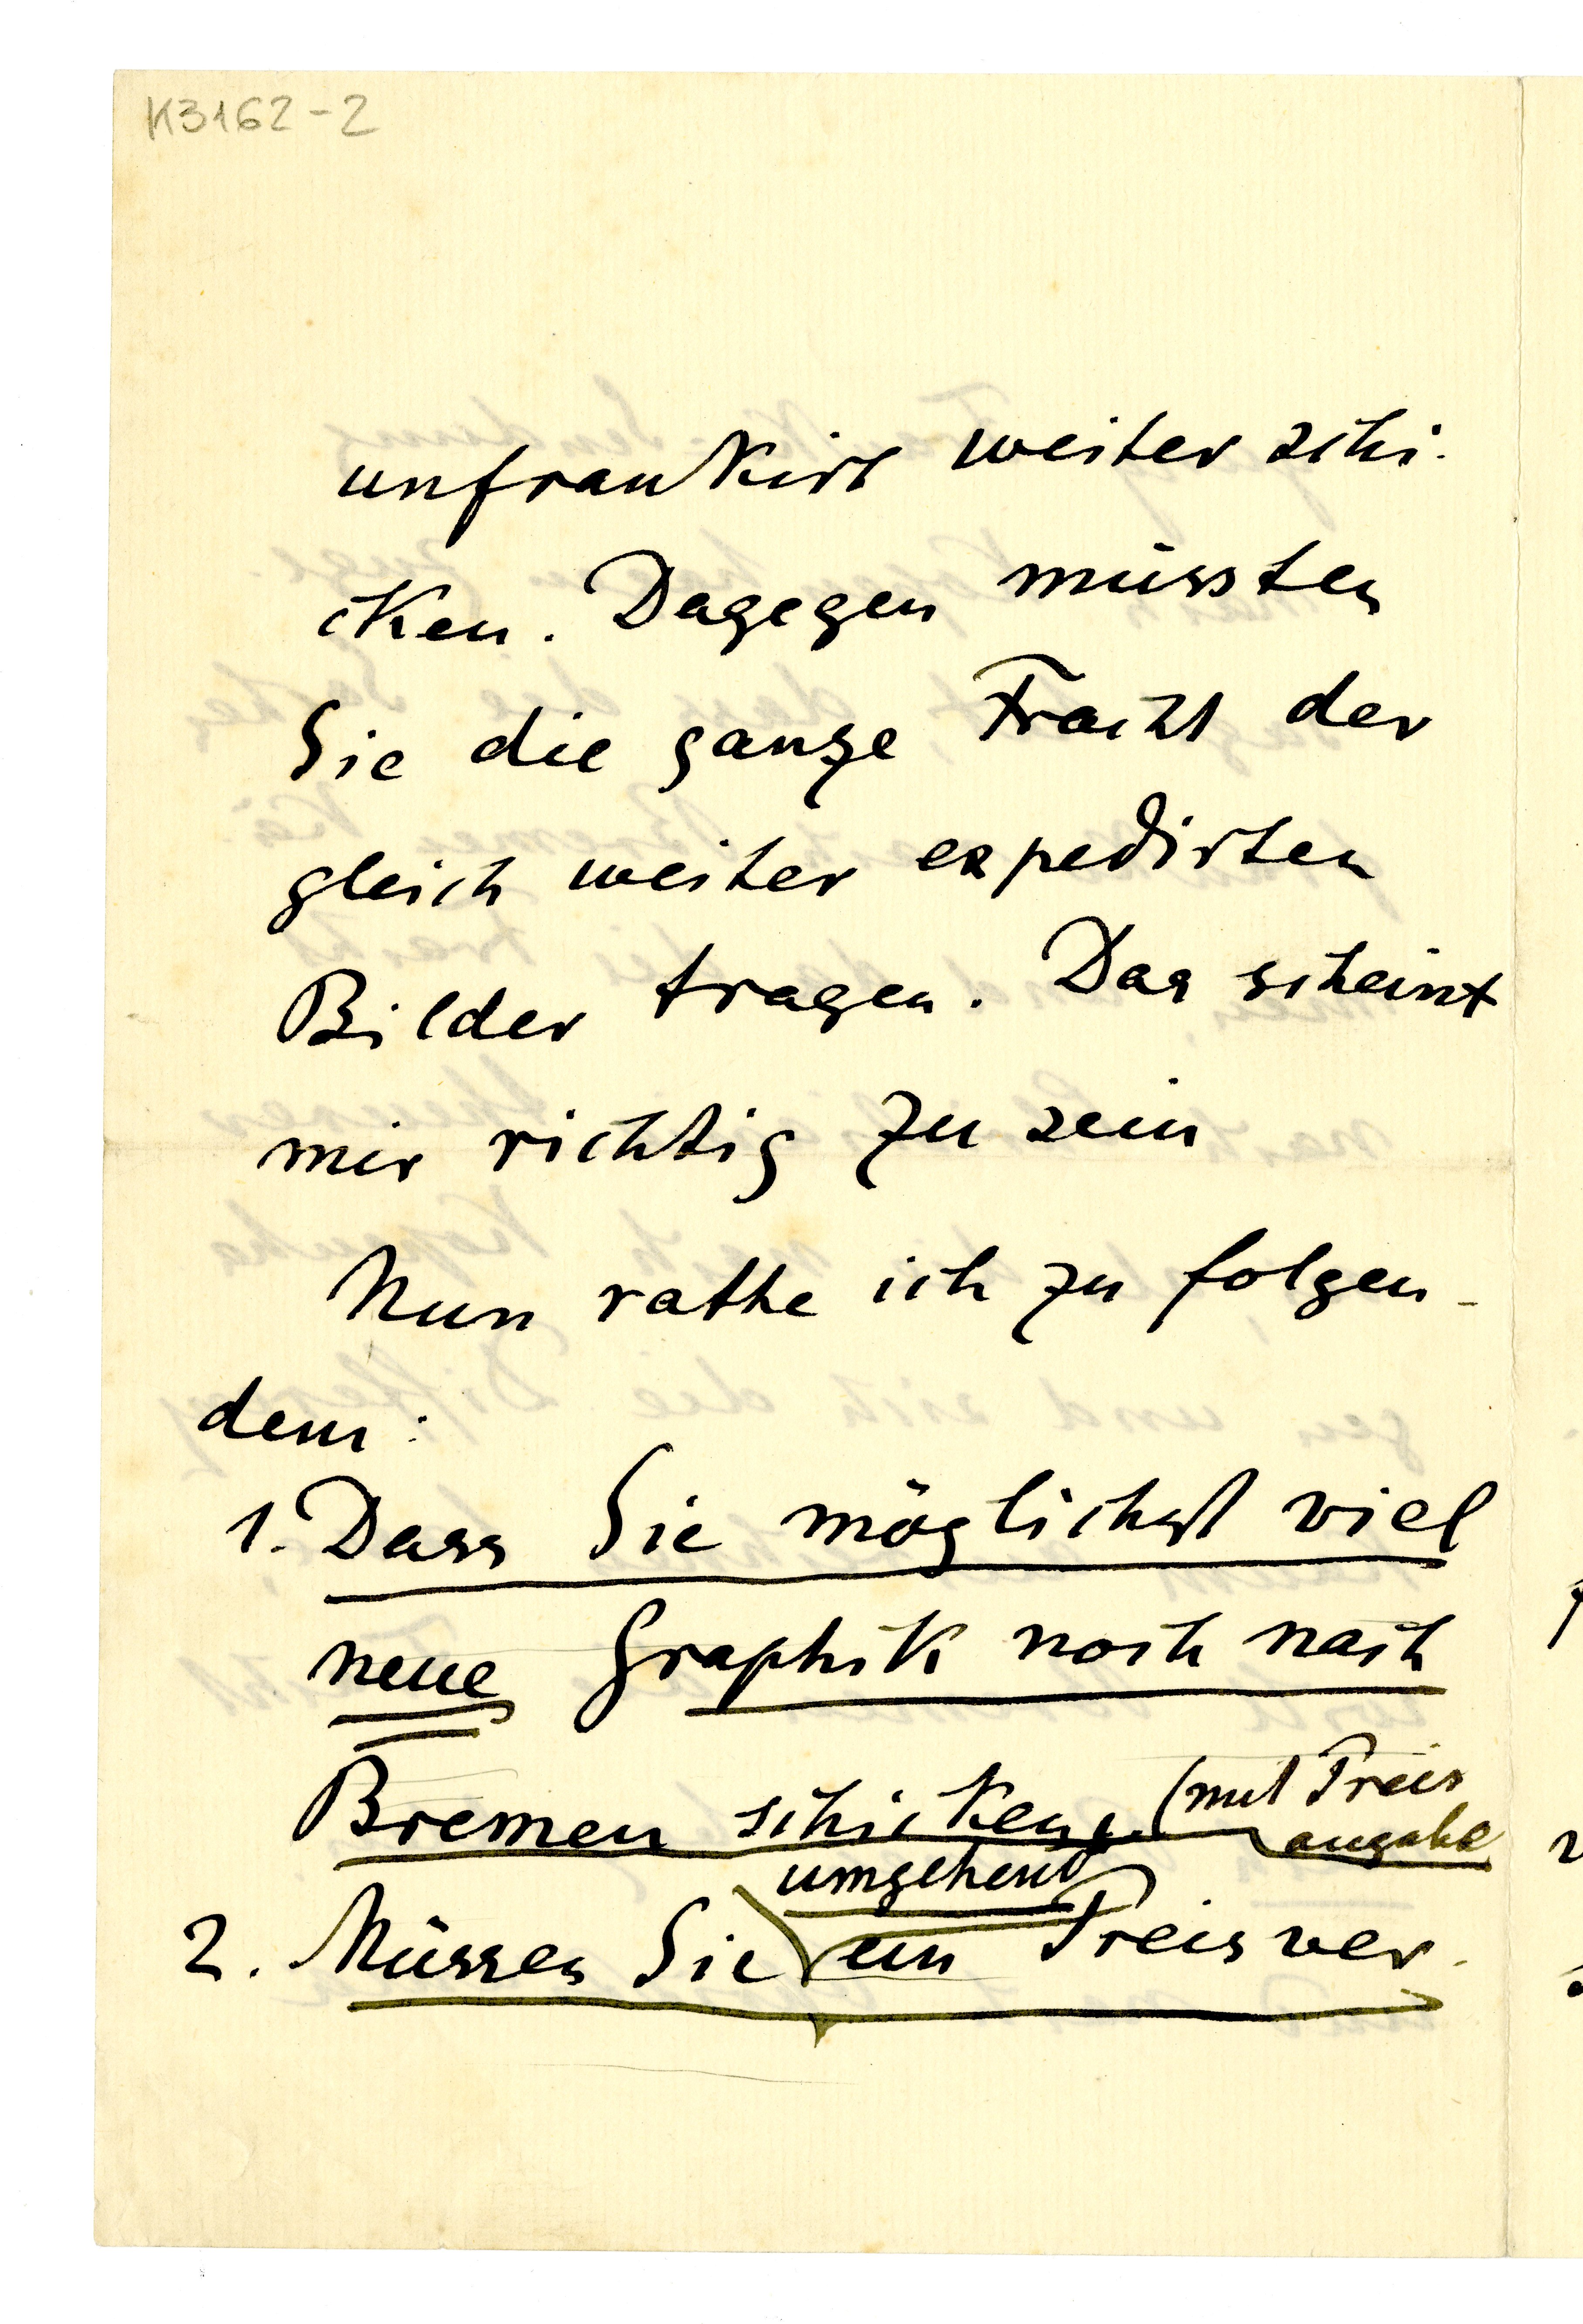 K3162-2
unfrankirt weiter schi-
cken. Dagegen müssten
Sie die ganze Fracht der
gleich weiter expedirten
Bilder tragen. Das scheint
mir richtig zu sein
Nun rathe ich zu folgen-
dem:
1. Dass Sie möglichst viel
neue Graphik noch nach
Bremen schicken, (mit Preis
angabe
umgehend
2. Müssen Sie ein Preisver-